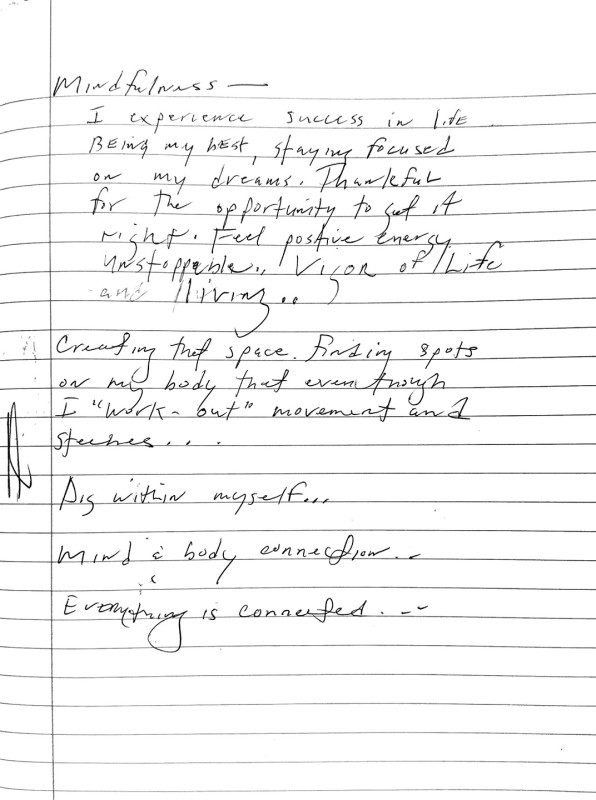 Mindfulness —
I experience success in life
Being my best, staying focused
on my dreams. Thankful
for the opportunity to get it
right. Feel positive energy
unstoppable., Vigor of Life
and living..
Creating that space. Finding spots
on my body that even though
I "work-out" movement and
steches...
Dig within myself...
Mind & body connection...
Everything is connected. --